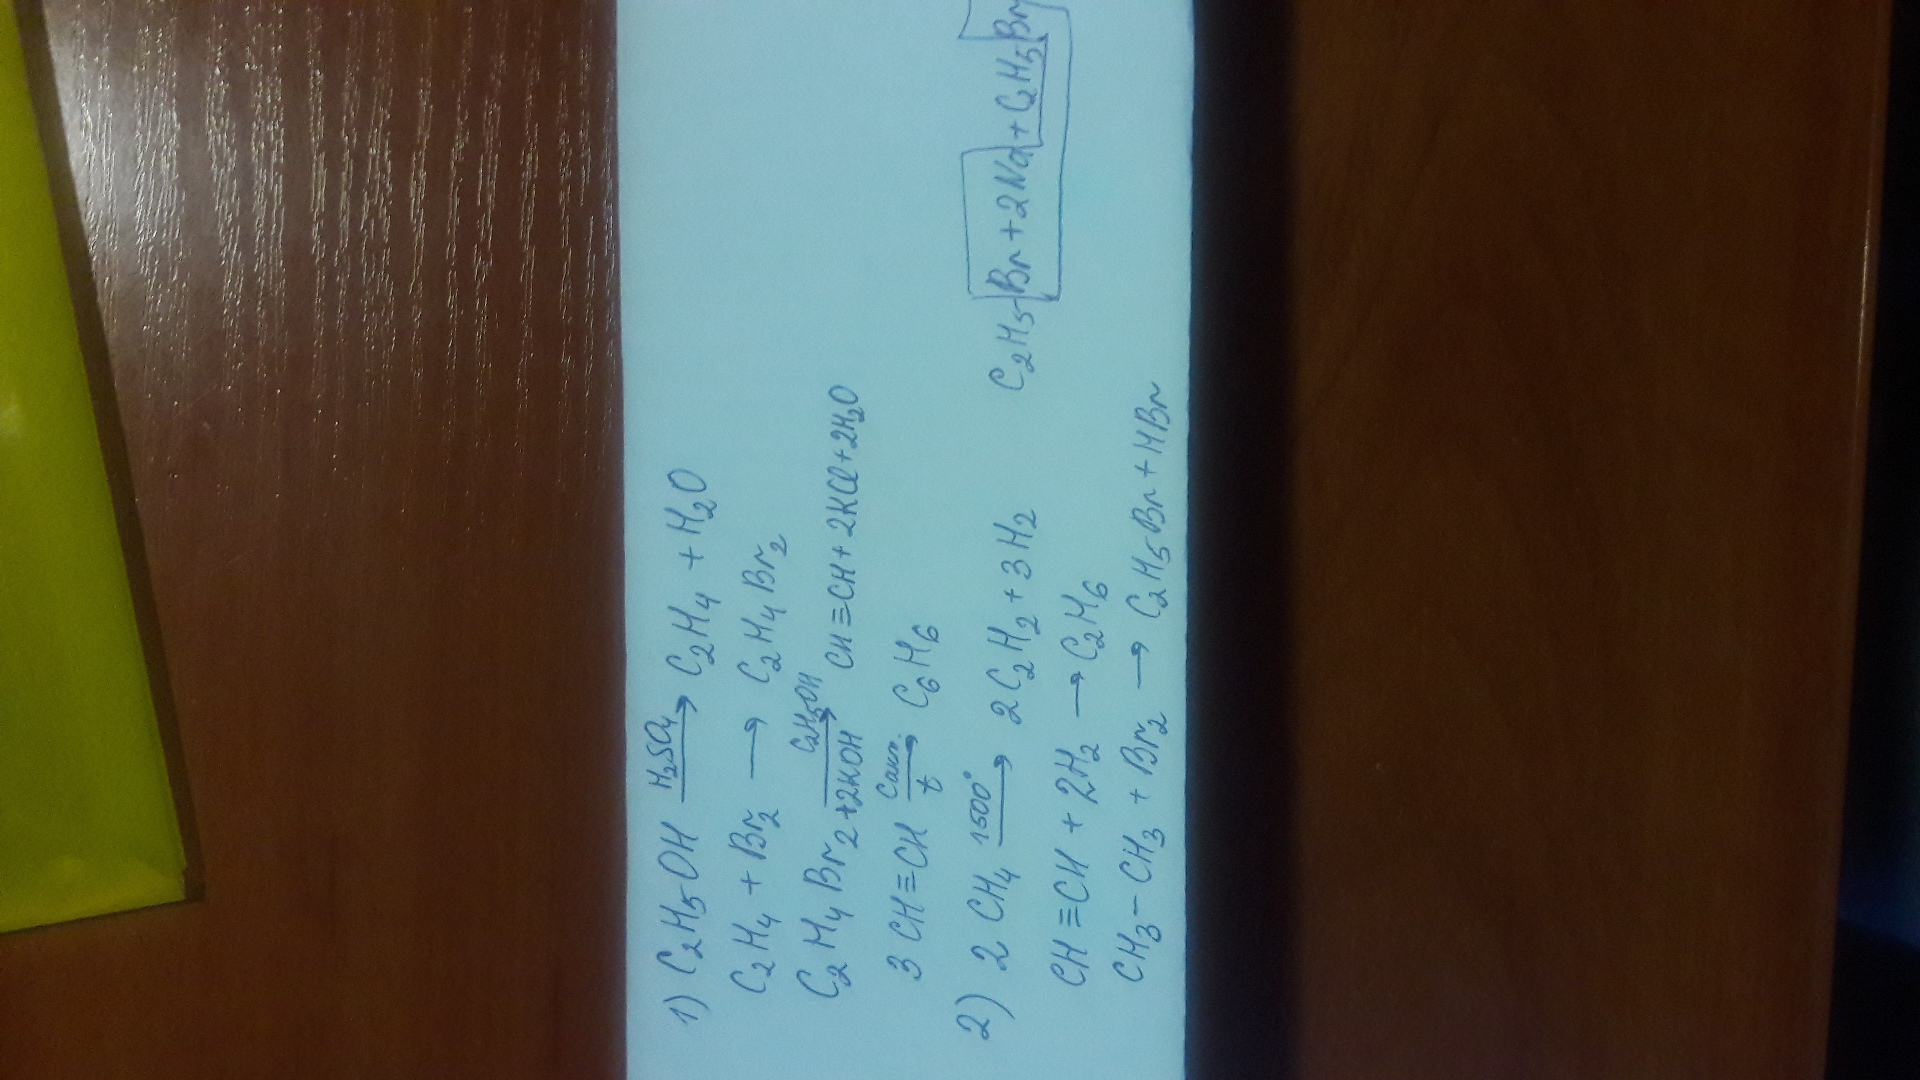 1) C₂H₅OH H₂SO₄→ C₂H₄ + H₂O
C₂H₄ + Br₂ → C₂H₄Br₂
C₂H₄Br₂+2KOH C₂H₅OH→ CH≡CH+2KCl+2H₂O
3CH≡CH Cакт. t→ C₆H₆
2) 2CH₄ 1500°→ 2C₂H₂+3H₂
CH≡CH + 2H₂ → C₂H₆
CH₃-CH₃ + Br₂ → C₂H₅Br+HBr
C₂H₅-Br+2Na+C₂H₅Br